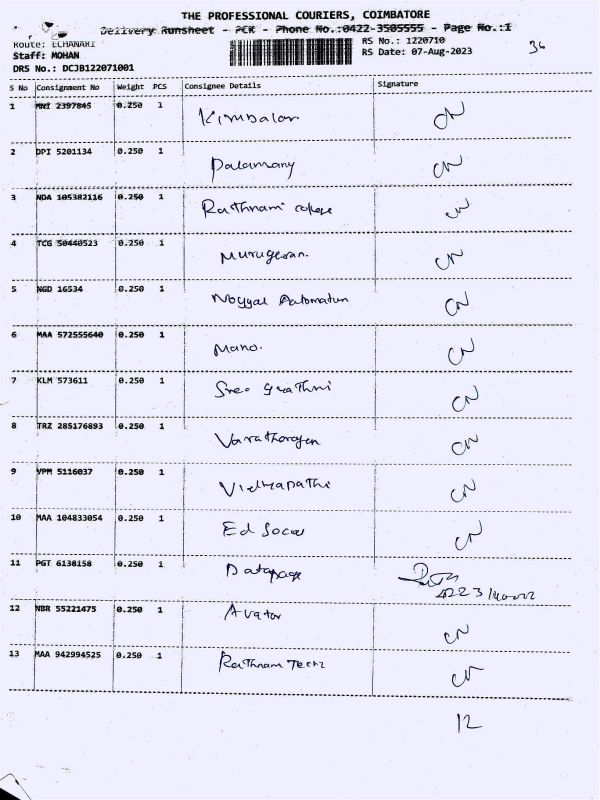 THE PROFESSIONAL COURIERS, COIMBATORE
Delivery Runsheet - PCK - Phone No.:0422-3505555 - Page No.:1
Route: ECHANARI RS No.: 1220710 36
Staff: MOHAN RS Date: 07-Aug-2023
DRS No.: DCJB122071001
S No Consignment No Weight PCS Consignee Details Signature
1 MNI 2397845 0.250 1 Kimbalan CN
2 DPI 5201134 0.250 1 Palamany CN
3 NDA 105382116 0.250 1 Rathnam college CN
4 TCG 50440523 0.250 1 Murugesan. CN
5 NGD 16534 0.250 1 Noyyal Automatun CN
6 MAA 572555640 0.250 1 Mano. CN
7 KLM 573611 0.250 1 Sree CN
8 TRZ 285176893 0.250 1 Varatharajen CN
9 VPM 5116037 0.250 1 Vidhyapathi CN
10 MAA 104833054 0.250 1 Ed Socar CN
11 PGT 6138158 0.250 1 Datapage
12 NBR 55221475 0.250 1 Avator CN
13 MAA 942994525 0.250 1 Rathnam Tech CN
12